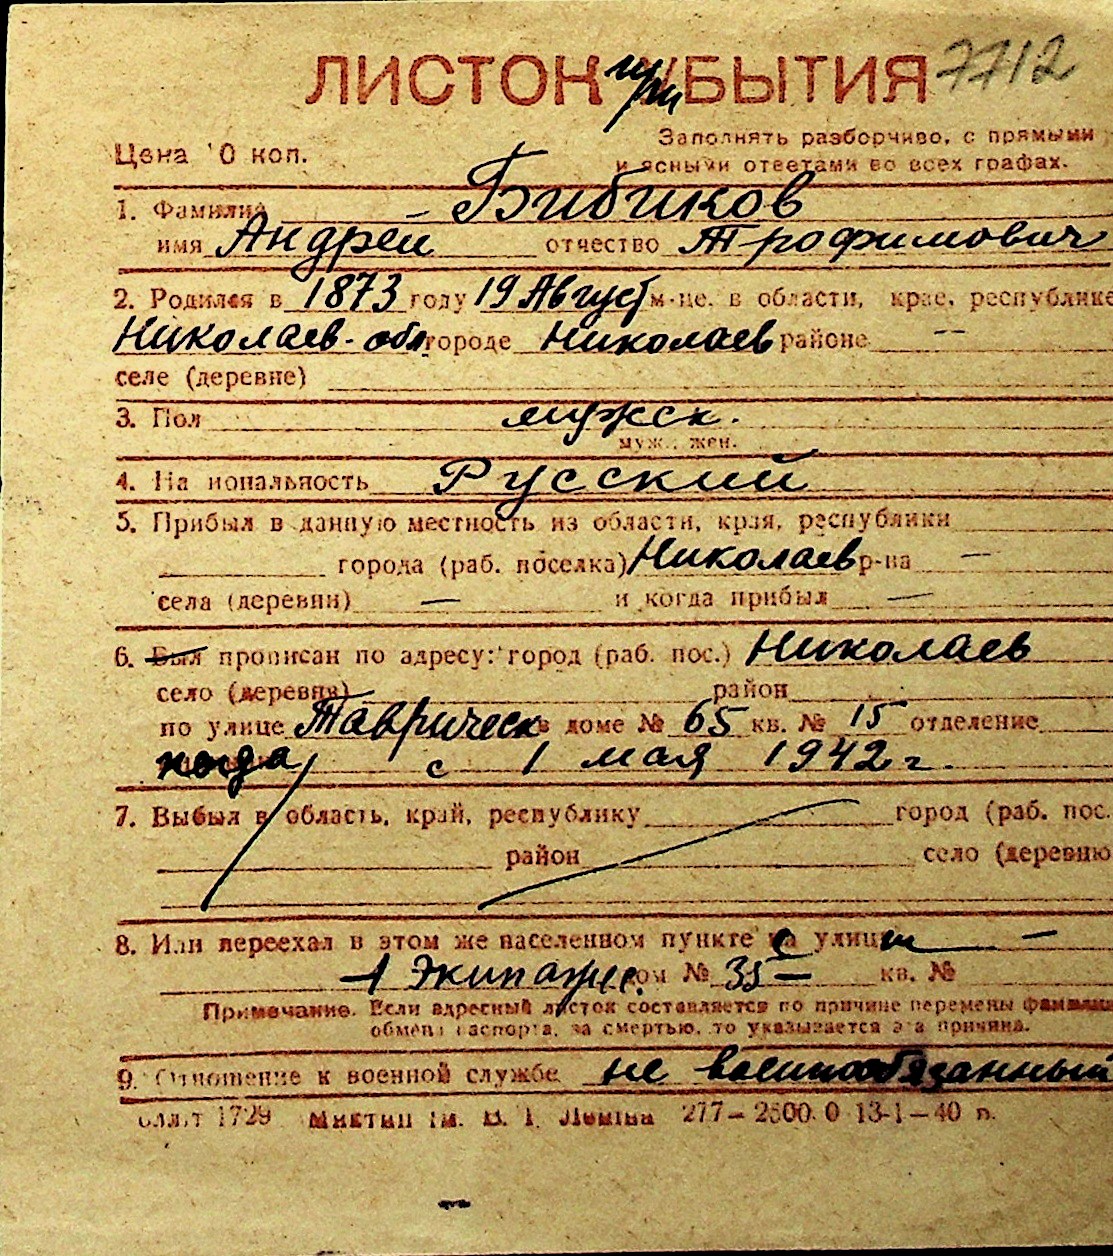 ЛИСТОК при УБЫТИЯ 7712
Цена 10 коп.
Заполнять разборчиво, с прямыми
и ясными ответами во всех графах.
1. Фамилия Бибиков
имя Андрей отчество Трофимович
2. Родился в 1873 году 19 Август м-це. в области, крае, республике
Николаев. обл. городе Николаев районе —
селе (деревне)
3. Пол мужск.
муж., жен.
4. Национальность Русский
5. Прибыл в данную местность из области, края, республики
города (раб. поселка) Николаев р-на —
села (деревни) — и когда прибыл —
6. Был прописан по адресу: город (раб. пос.) Николаев
село (деревня) район
по улице Таврическ в доме № 65 кв. № 15 отделение
когда с 1 мая 1942 г.
7. Выбыл в область, край, республику город (раб. пос.
район село (деревню
8. Или переехал в этом же населенном пункте с улицы —
1 Экипажн. дом № 35 — кв. №
Примечание. Если адресный листок составляется по причине перемены фамилии
обмена паспорта, за смертью, то указывается эта причина.
9. Отношение к военной службе не военнообязанный
1729 277—2500.0 13-1—40 п.